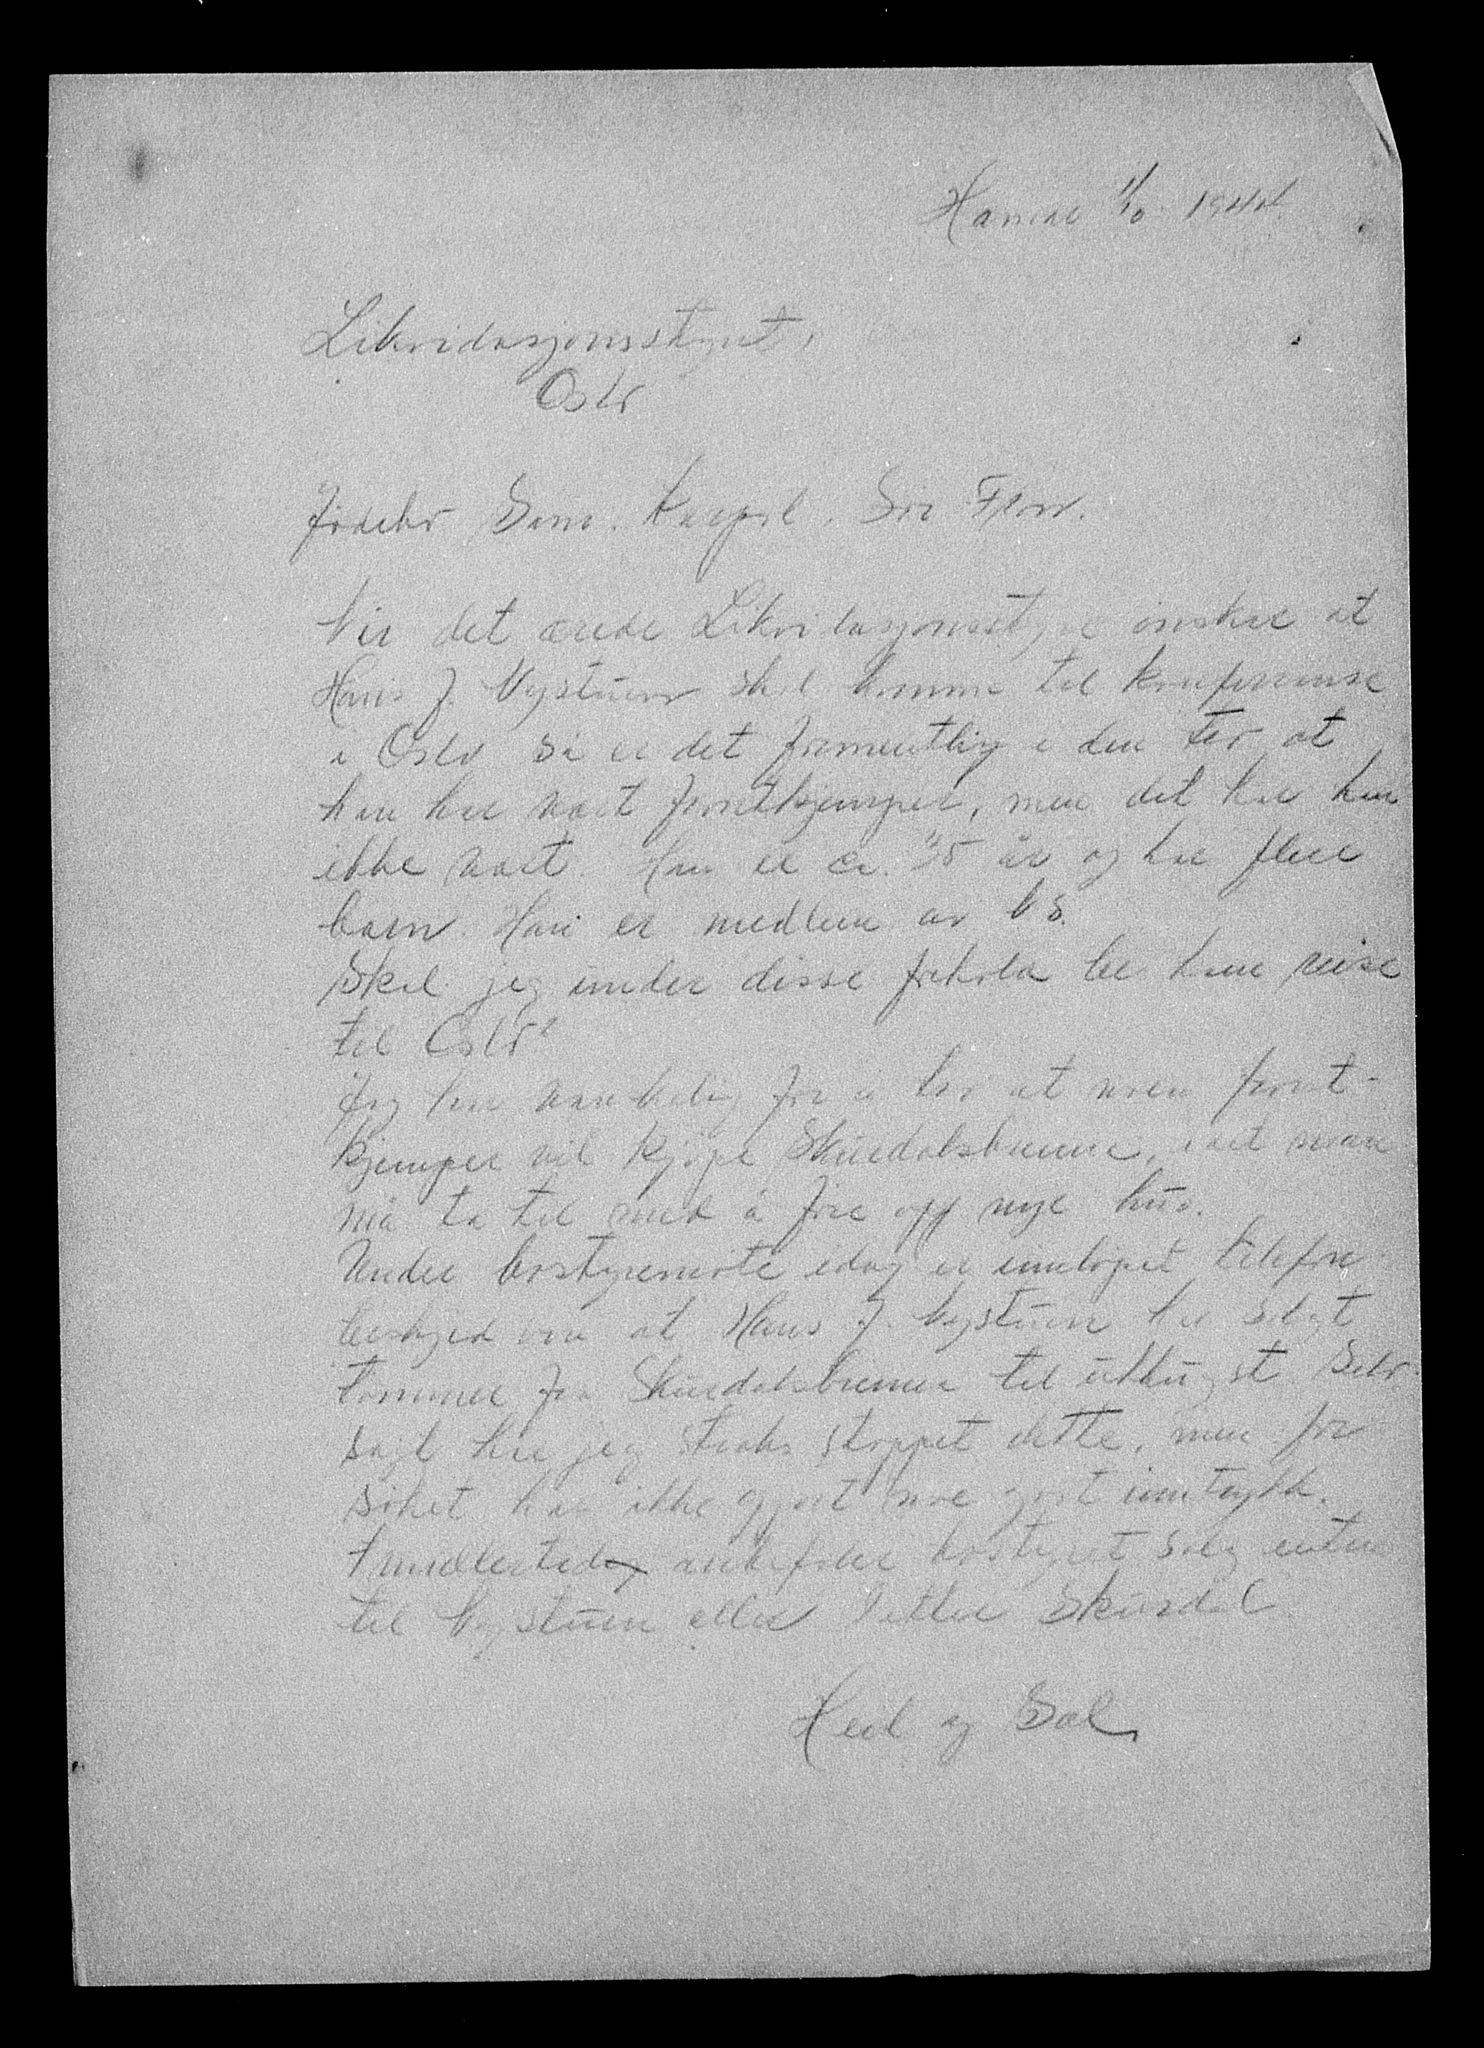 Hamar 1/10 1944.
Likvidasjonsstyret,
Oslo
Jödebo Sam. Karpol. Sör-Fron.
Når det ærede Likvidasjonsstyre önsker at
Hans J. Nystuen skal komme til konferanse
i Oslo så er det formentlig i den tro at
han har vært frontkjemper, men det har han
ikke vært. Han er ca. 35 år og har flere
barn. Han er medlem av NS.
Skal jeg under disse forhold be ham reise
til Oslo?
Jeg har vanskelig for å tro at noen front-
kjemper vil kjöpe Skurdalsbrenna, idet man
må ta til med å före opp nye hus.
Under bostyremöte idag er innlöpet telefon-
beskjed om at Hans J. Nystuen har solgt
tömmer fra Skurdalsbrenna til utkugst. Selv-
sagt har jeg straks stoppet dette, men for
söket har ikke gjort noe godt inntrykk.
Imidlertid anbefaler bostyret salg enten
til Nystuen eller Petter Skurdal
Heil og Sæl